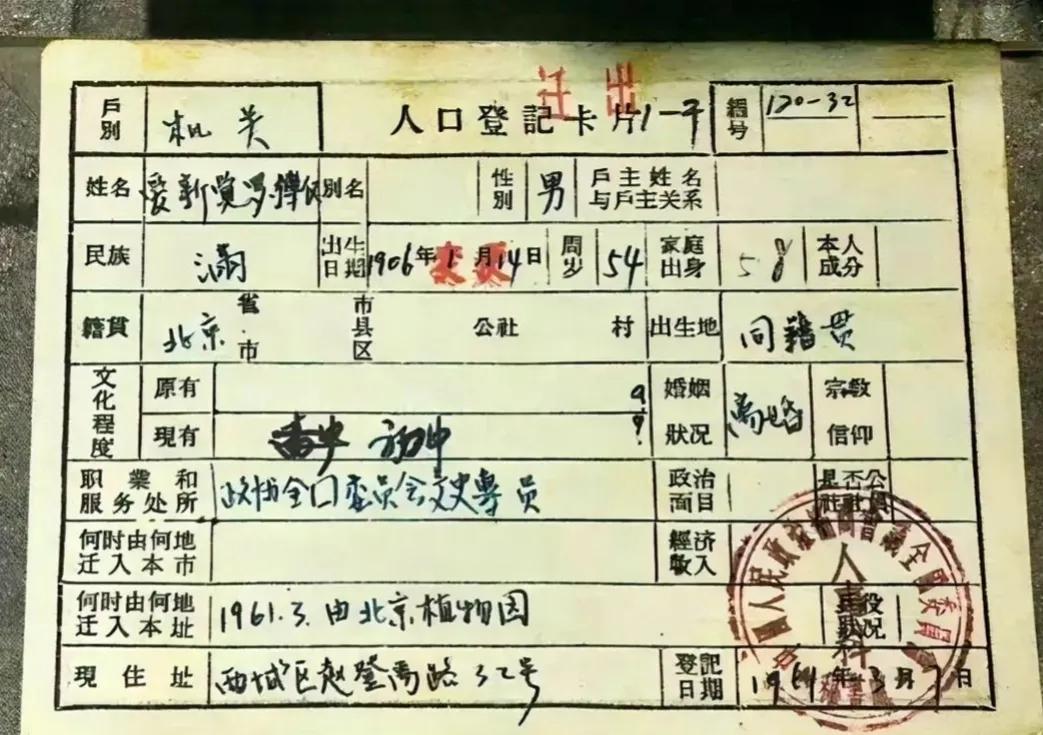 迁出
户別 机关 人口登記卡片 编号 170-32
姓名 爱新觉罗 別名 性別 男 户主姓名与户主关系
民族 满 出生日期 1906年1月14日 周岁 54 家庭出身 本人成分
籍貫 北京 省市 市县区 公社 村 出生地 同籍贯
文化程度 原有 婚姻狀况 离婚 宗敎信仰
現有 初中
职業和服务处所 政协全囗委员会文史專员 政治面目 是否公社社員
何时由何地迁入本市 經济收入
何时由何地迁入本址 1961.3.由北京植物园 兵役狀况
現住址 西城区赵登禹路32号 登記日期 年3月7日
中国人民政治协商會議全國委員會
人事科